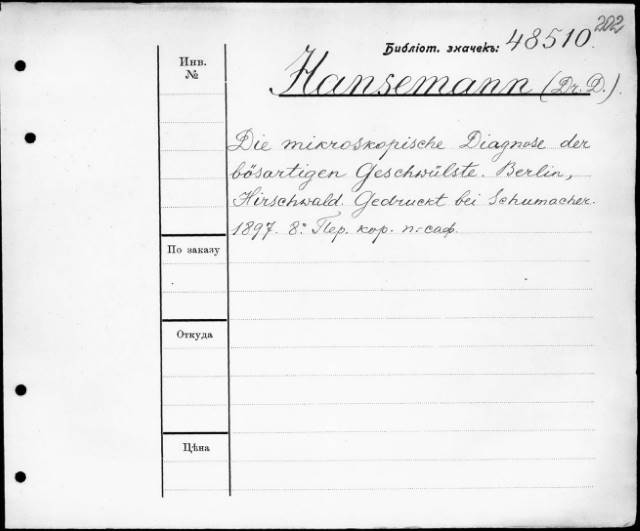 202
Библіот. значекъ: 48510.
Инв.
№
Hansemann (Dr. D.).
Die mikroskopische Diagnose der
bösartigen Geschwülste. Berlin,
Hirschwald. Gedruckt bei Schumacher.
1897. 8º. Пер. кор. п.-саф.
По заказу
Откуда
Цѣна